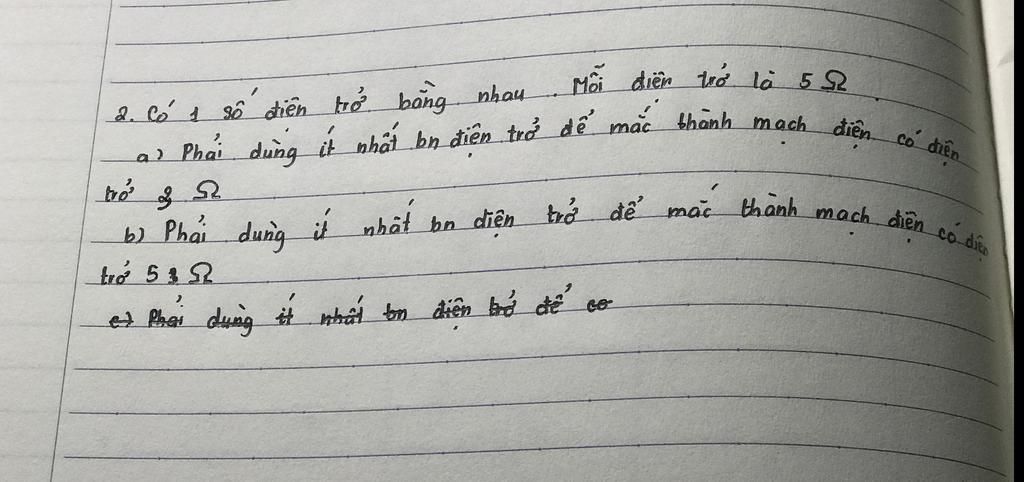 2. Có 1 số điện trở bằng nhau. Mỗi điện trở là 5 Ω.
a) Phải dùng ít nhất bn điện trở để mắc thành mạch điện có điện
trở 3 Ω
b) Phải dùng ít nhất bn điện trở để mắc thành mạch điện có điện
trở 5 Ω
c) Phải dùng ít nhất bn điện trở để co